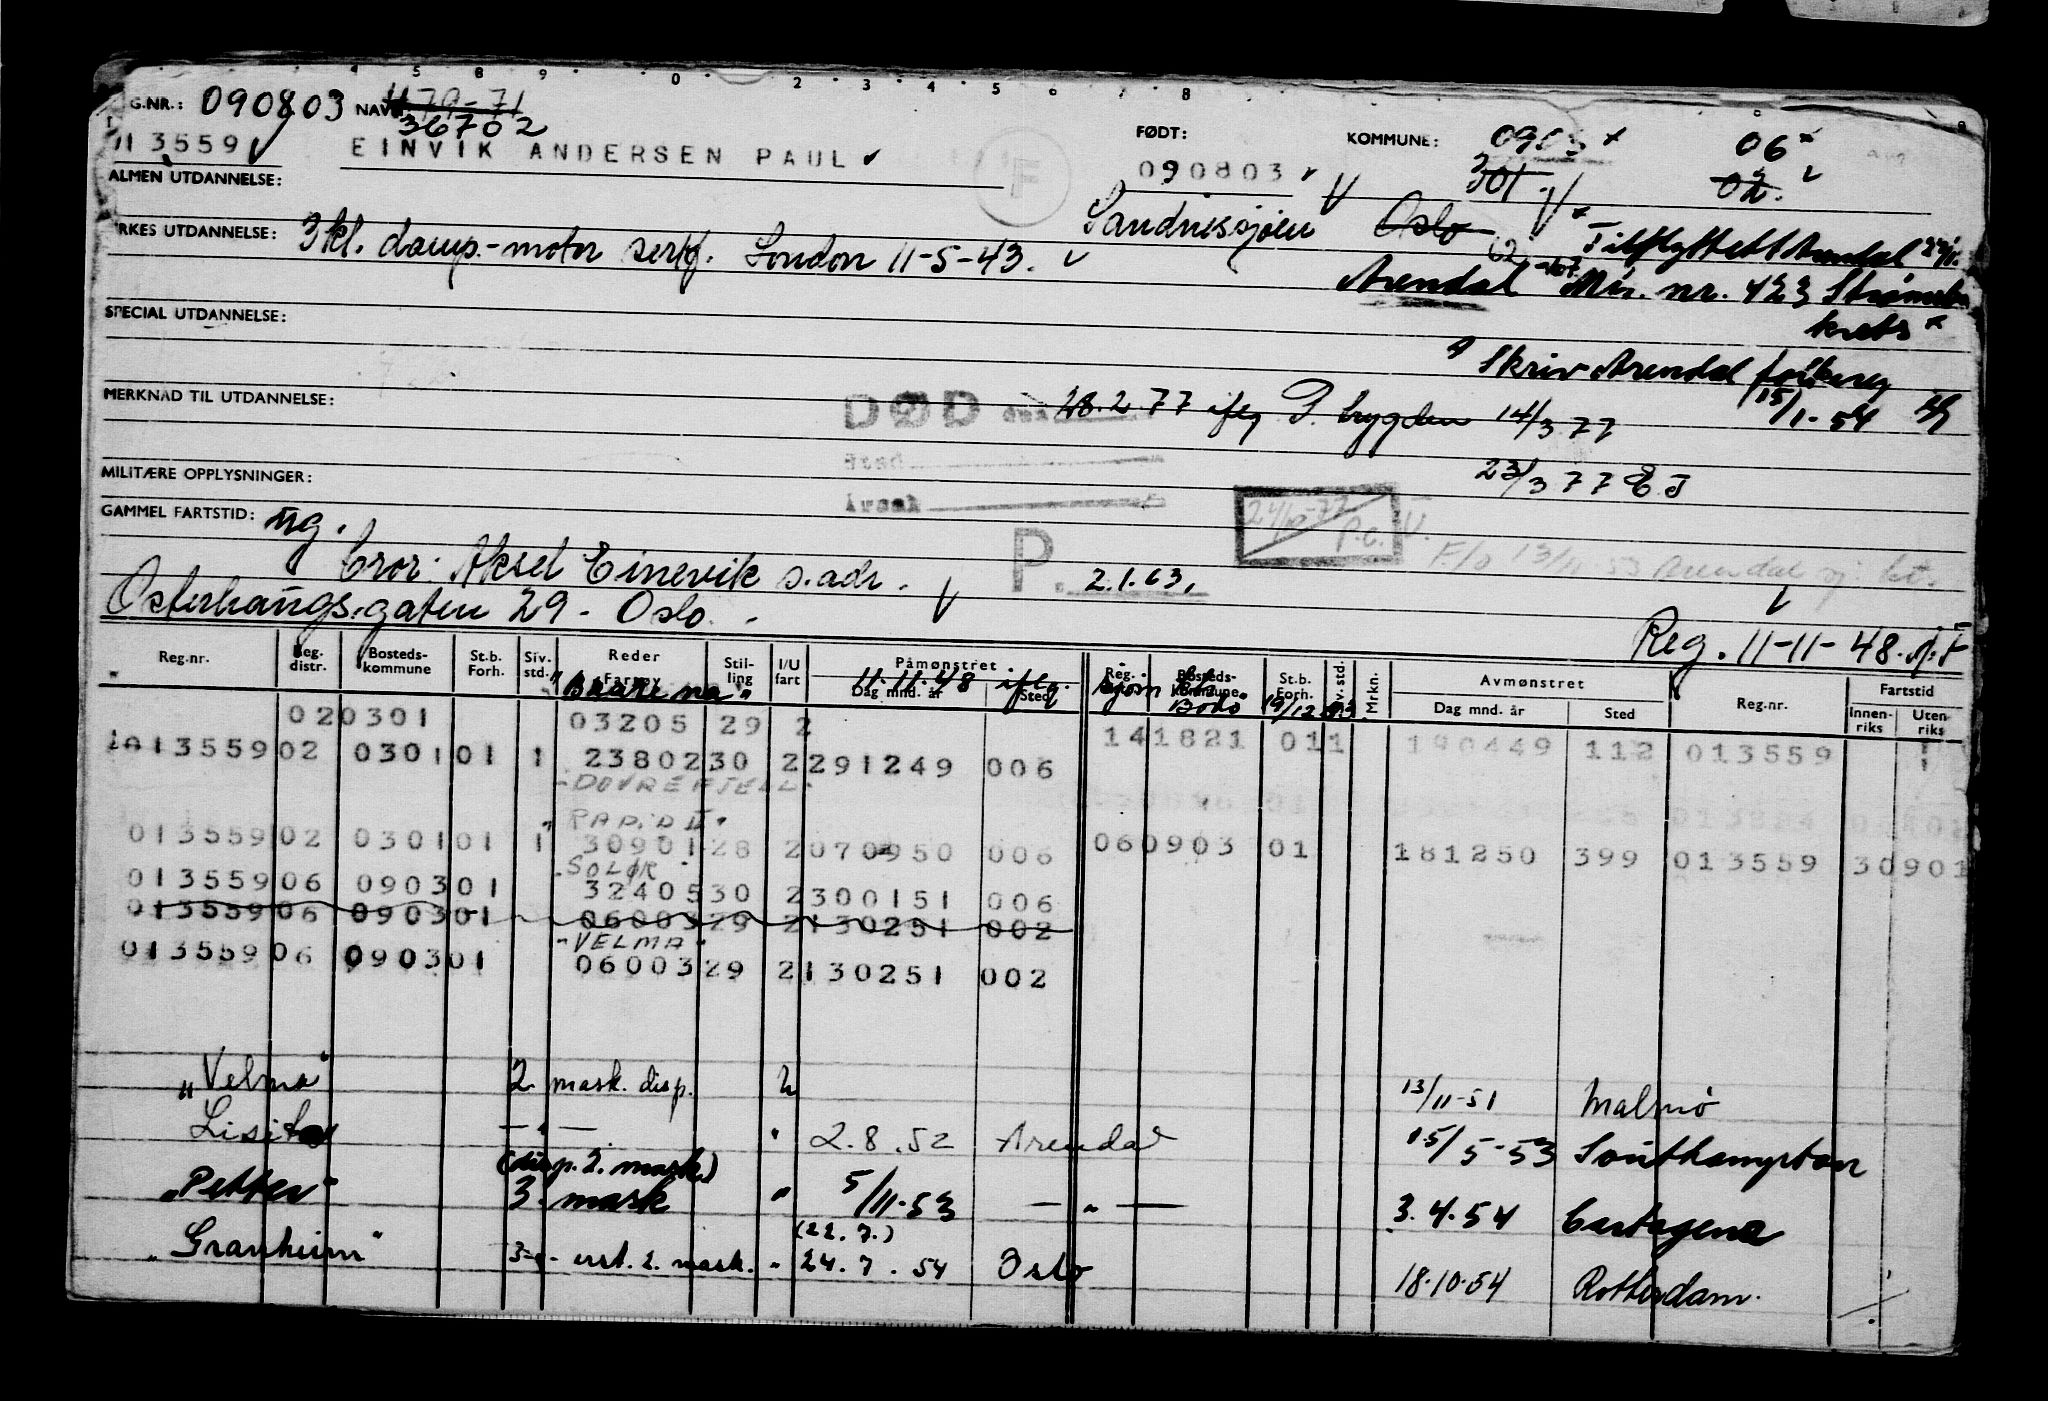 G.NR.: 090803 NAVN 1179-71
36702
013559 EINVIK ANDERSEN PAUL
FØDT: 090803
KOMMUNE: 0903 06
301 02.
F
ALMEN UTDANNELSE: Sandnessjøen Oslo
YRKES UTDANNELSE: 3kl. damp.-motor sertf. London 11-5-43.
Tilflyttet Arendal
Arendal Mtr. nr. 423 Strømsbu
krets
SPECIAL UTDANNELSE:
Skriv Arendal folkereg
15/1-54
MERKNAD TIL UTDANNELSE: DØD den 28.2 77 iflg P. trygden 14/3 77
Sted
23/3 77 EJ
MILITÆRE OPPLYSNINGER:
Årsak
GAMMEL FARTSTID: ug.
F/o 13/11-53 Arendal sj. kt.
bror: Aksel Einevik s.adr. P. 2.1.63.
Osterhausgaten 29 - Oslo.
Reg. 11-11-48.
Reg.nr. Reg. distr. Bosteds-kommune St.b. Forh. Siv. std. Reder Fartøy Stil-ling I/U fart Påmønstret Dag mnd. år Sted Reg. Bosteds-kommune St.b. Forh. Siv. std. Mrkn. Avmønstret Dag mnd. år Sted Reg.nr. Fartstid Innen-riks Uten-riks
11.11.48 iflg. sjøm. Bodø 19/12 53
020301 03205 29 2
141821 011 190449 112 013559
013559 02 0301 01 1 23802 30 2 291249 006
-DOVREFJELL-
"RAPID II"
013559 02 0301 01 1 30901 28 2 070950 006 060903 01 181250 399 013559 30901
-SOLØR-
013559 06 0903 01 32405 30 2 300151 006
013559 06 0903 01 06003 29 2 130251 002
-VELMA-
013559 06 0903 01 06003 29 2 130251 002
"Velma" 2 mask. disp. U 13/11-51 Malmø
Lisita — " — " 2.8.52 Arendal 15/5-53 Southampton
(disp. 2. mask)
"Petter" 3. mask " 5/11.53 — " — 3.4.54 Cartagena
(22.7.)
"Granheim" 3 - " - erst. 2. mask. " 24.7.54 Oslo 18.10.54 Rotterdam.